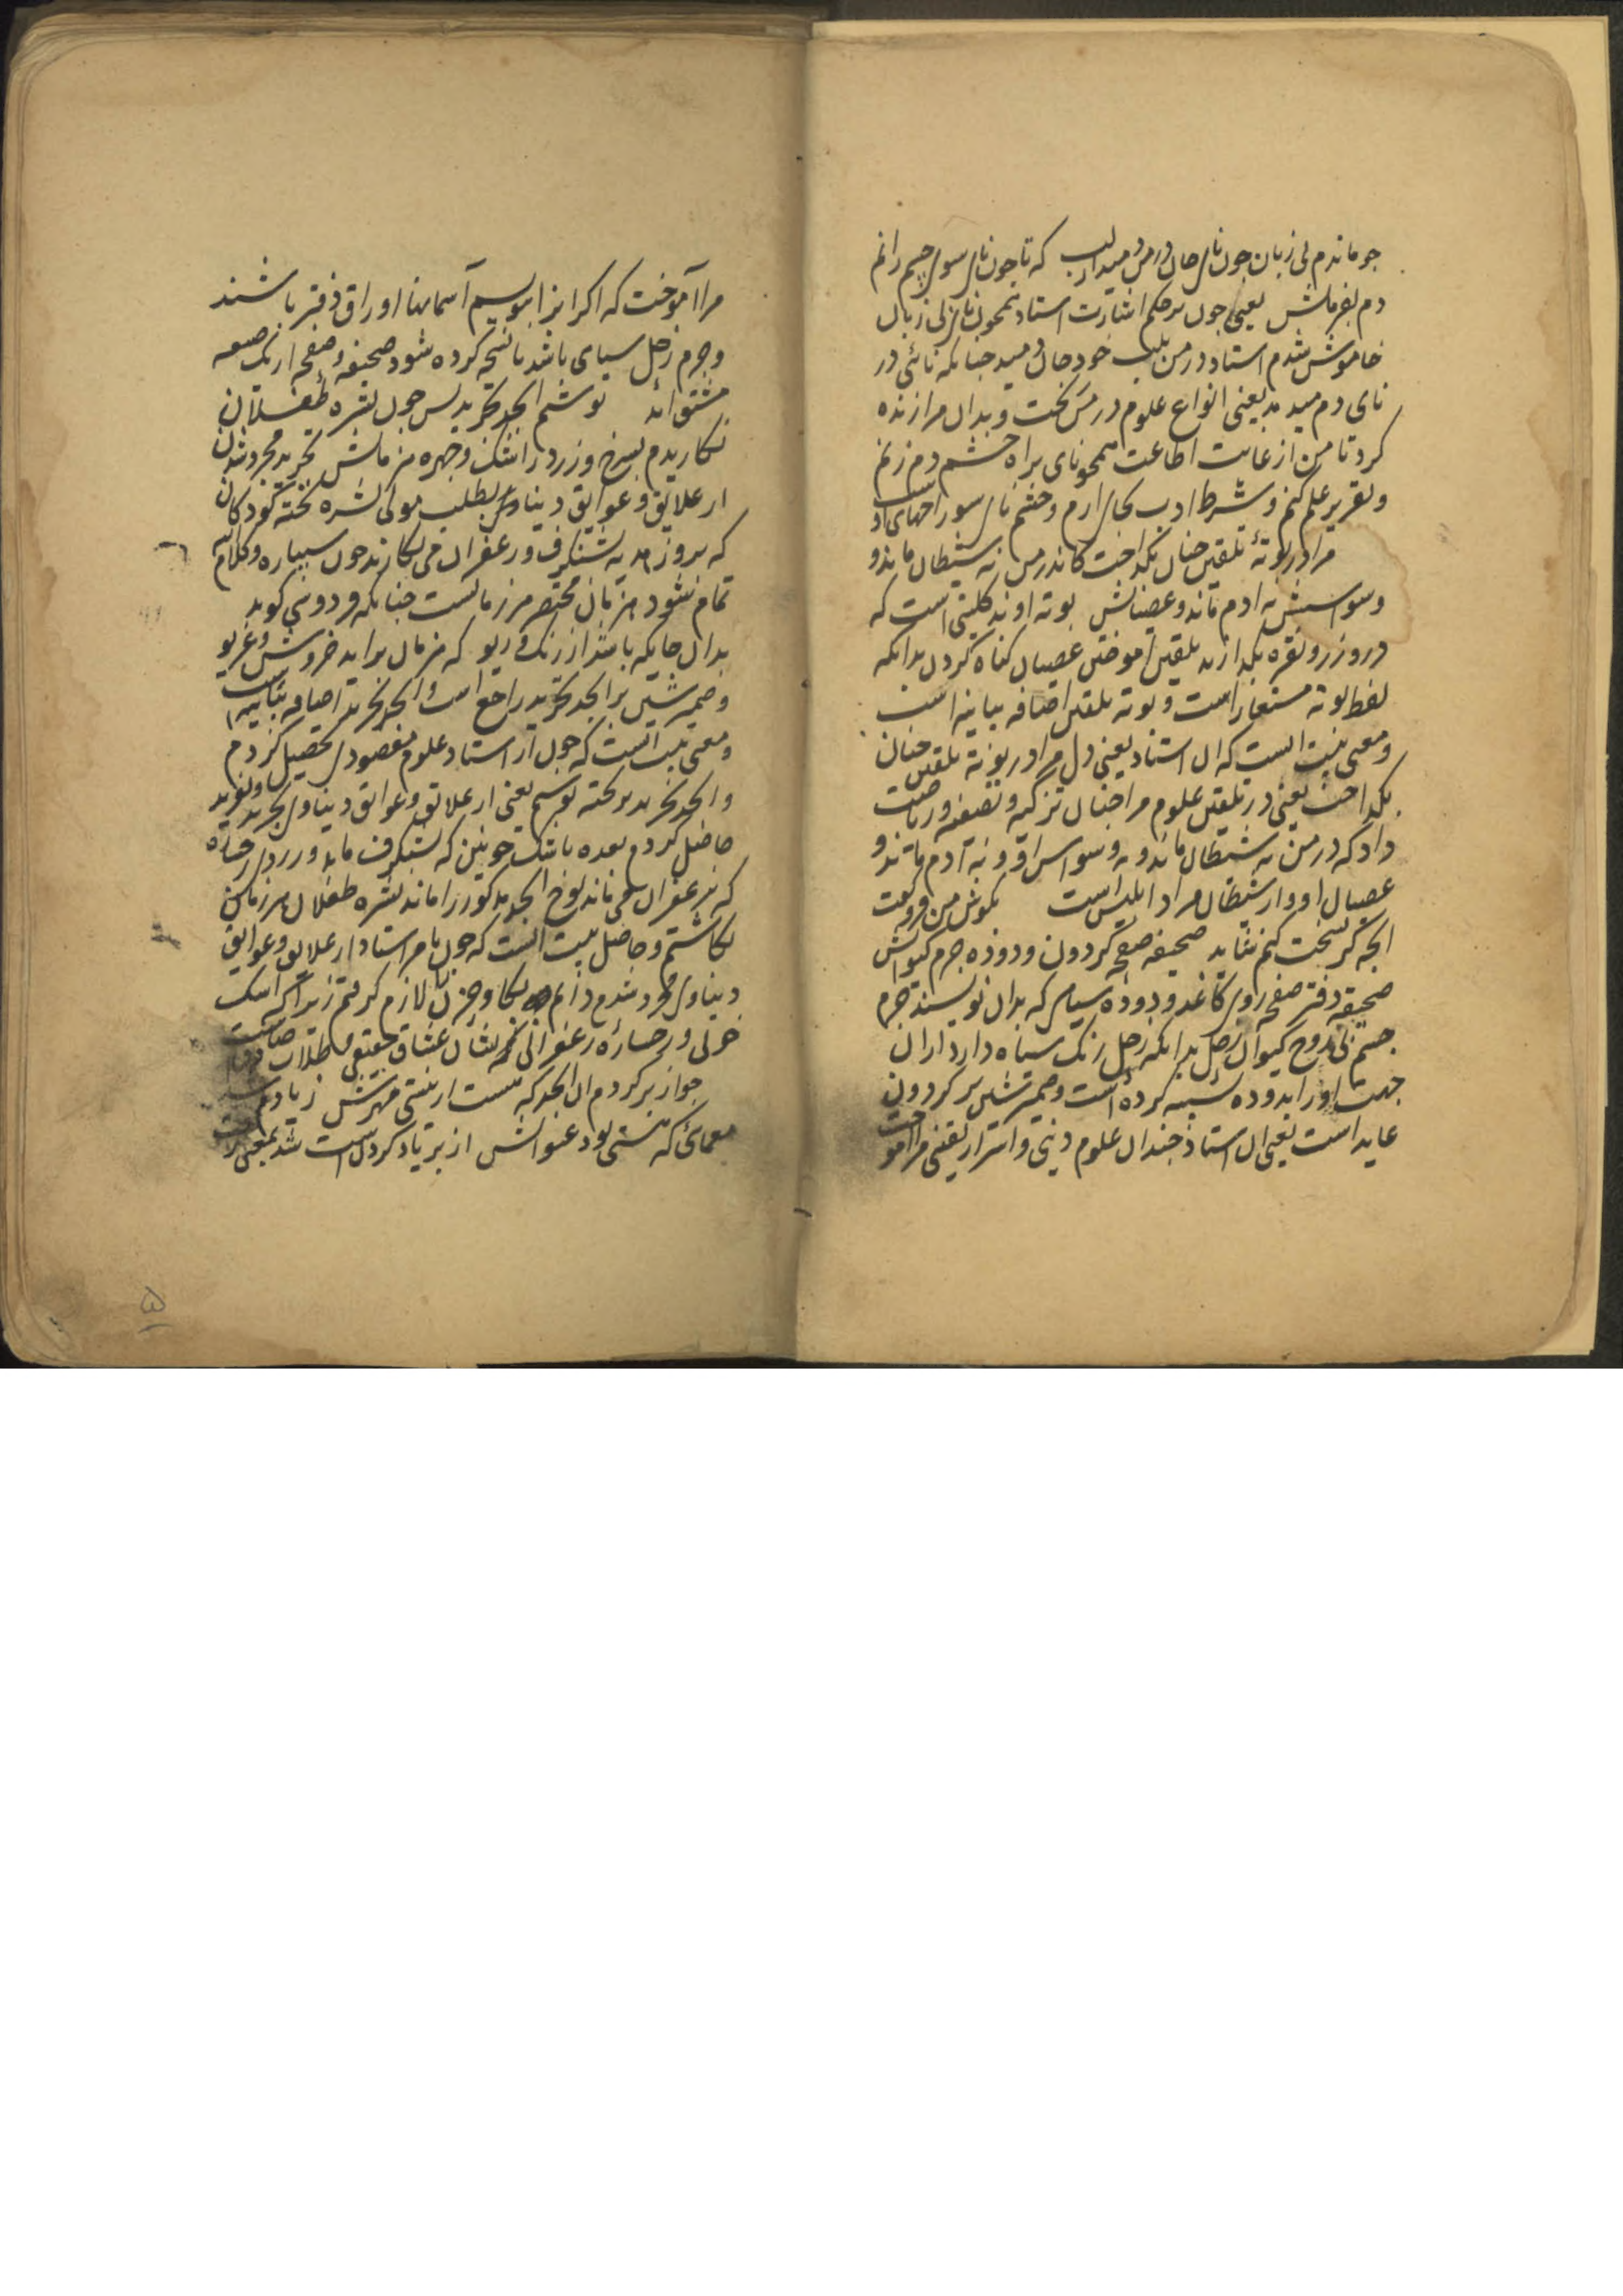 جو ماندم بی زبان جون نای جان در من دمید از لب که تا جون نای سوی چشم رانم
دم بفرمانش یعنی جون بر حکم اشارت استاد همجون نای بی زبان
خاموش شدم استاد در من بلب خود جان دمید جنانکه نائی در
نای دم میدمد یعنی انواع علوم در من ریخت و بدان مرا زنده
کرد تا من از غایت اطاعت همجو نای براه چشم دم زنم
و تقریر علم کنم و شرط ادب بجای ارم و چشم نای سوراخهای اوست
مرا در بوتهٔ تلقین جنان بگداخت کاندر من نه شیطان ماند و
وسواسش نه ادم ماند و عصیانش بوته اوند کلیتی است که
درو زر و نقره بگدازند تلقین اموختن عصیان گناه کردن بدانکه
لفظ بوته مستعار است و بوته تلقین اضافه بیانیه است
و معنی بیت اینست که ان استاد یعنی دل مرا در بوتهٔ تلقین جنان
بگداخت یعنی در تلقین علوم مرا جنان تزکیه و تصفیه و ریاضت
داد که در من نه شیطان ماند و نه وسواس او و نه آدم ماند و
عصیان او و از شیطان مراد ابلیس است بگوش من فرو گفت
انجه گر نسخت کنم شاید صحیفه صفحه گردون و دوده جرم کیوانش
صحیفه دفتر صفحه روی کاغذ و دوده سیاهی که بدان نویسند جرم
جسم بی روح کیوان زحل بدانکه زحل رنگ سیاه دارد از ان
جهت او را بدوده تشبیه کرده است و ضمیر شین بر گردون
عاید است یعنی ان استاد جندان علوم دینی و اسرار یقینی مرا اموخت
مرا آموخت که اگر انرا بنویسم آسمانها اوراق دفتر باشند
و جرم زحل سیاهی باشد تا نسخه کرده شود صحیفه و صفحه از یک صیغه
مشتق اند نوشتم ابجد تجرید پس جون نشره طفلان
نگاریدم بسرخ و زرد ز اشک و چهره هزمانش تجرید مجرد شدن
از علایق و عوایق دنیاوی بطلب مولی نشره تخته کودکان
که بروز عید به شنگرف و زعفران می نگارند جون سیپاره و کلام الله
تمام شود هزمان مختصر هر زمانست جنانکه فردوسی گوید
بدان جایگه باشد ارژنگ دیو که هزمان براید خروش و غریو
و ضمیر شین بر ابجد تجرید راجع است و ابجد تجرید اضافه بیانیه است
و معنی بیت اینست که جون از استاد علوم مقصود تحصیل کردم
و ابجد تجرید بر تخته نوشتم یعنی از علایق و عوایق دنیاوی تجرید و تفرید
حاصل کردم بعده باشک خونین که بشنگرف ماند و زردی رخساره
که بزعفران می ماند لوح ابجد مذکور را مانند نشره طفلان هر زمانش
نگاشتم و حاصل بیت اینست که جون بامر استاد از علایق و عوایق
دنیاوی مجرد شدم دائم بکا و حزن لازم گرفتم زیرا که اشک
خونی و رخساره زعفرانی نشان عشاق حقیقی و طلاب
جو از بر کردم ان ابجد که هست از نیستی مهرش ز یادم شد
معمائی که هستی بود عنوانش از بر یاد کردن است شد بمعنی رفت